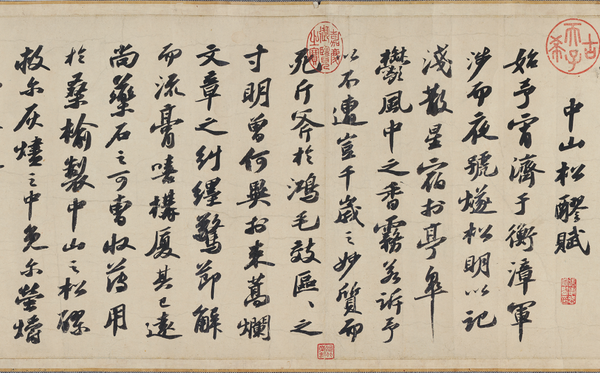 古希天子
嘉慶御覽之寶
中山松醪賦
始予宵濟于衡漳軍
涉而夜號燧松明以記
淺散星宿於亭皋
鬱風中之香霧若訴予
以不遭豈千歲之妙質而
死斤斧於鴻毛效區區之
寸明曾何異於束蒿爛
文章之糾纆驚節解
而流膏嘻構廈其已遠
尚藥石之可曹收薄用
於桑榆製中山之松醪
救尔灰燼之中免尔螢爝